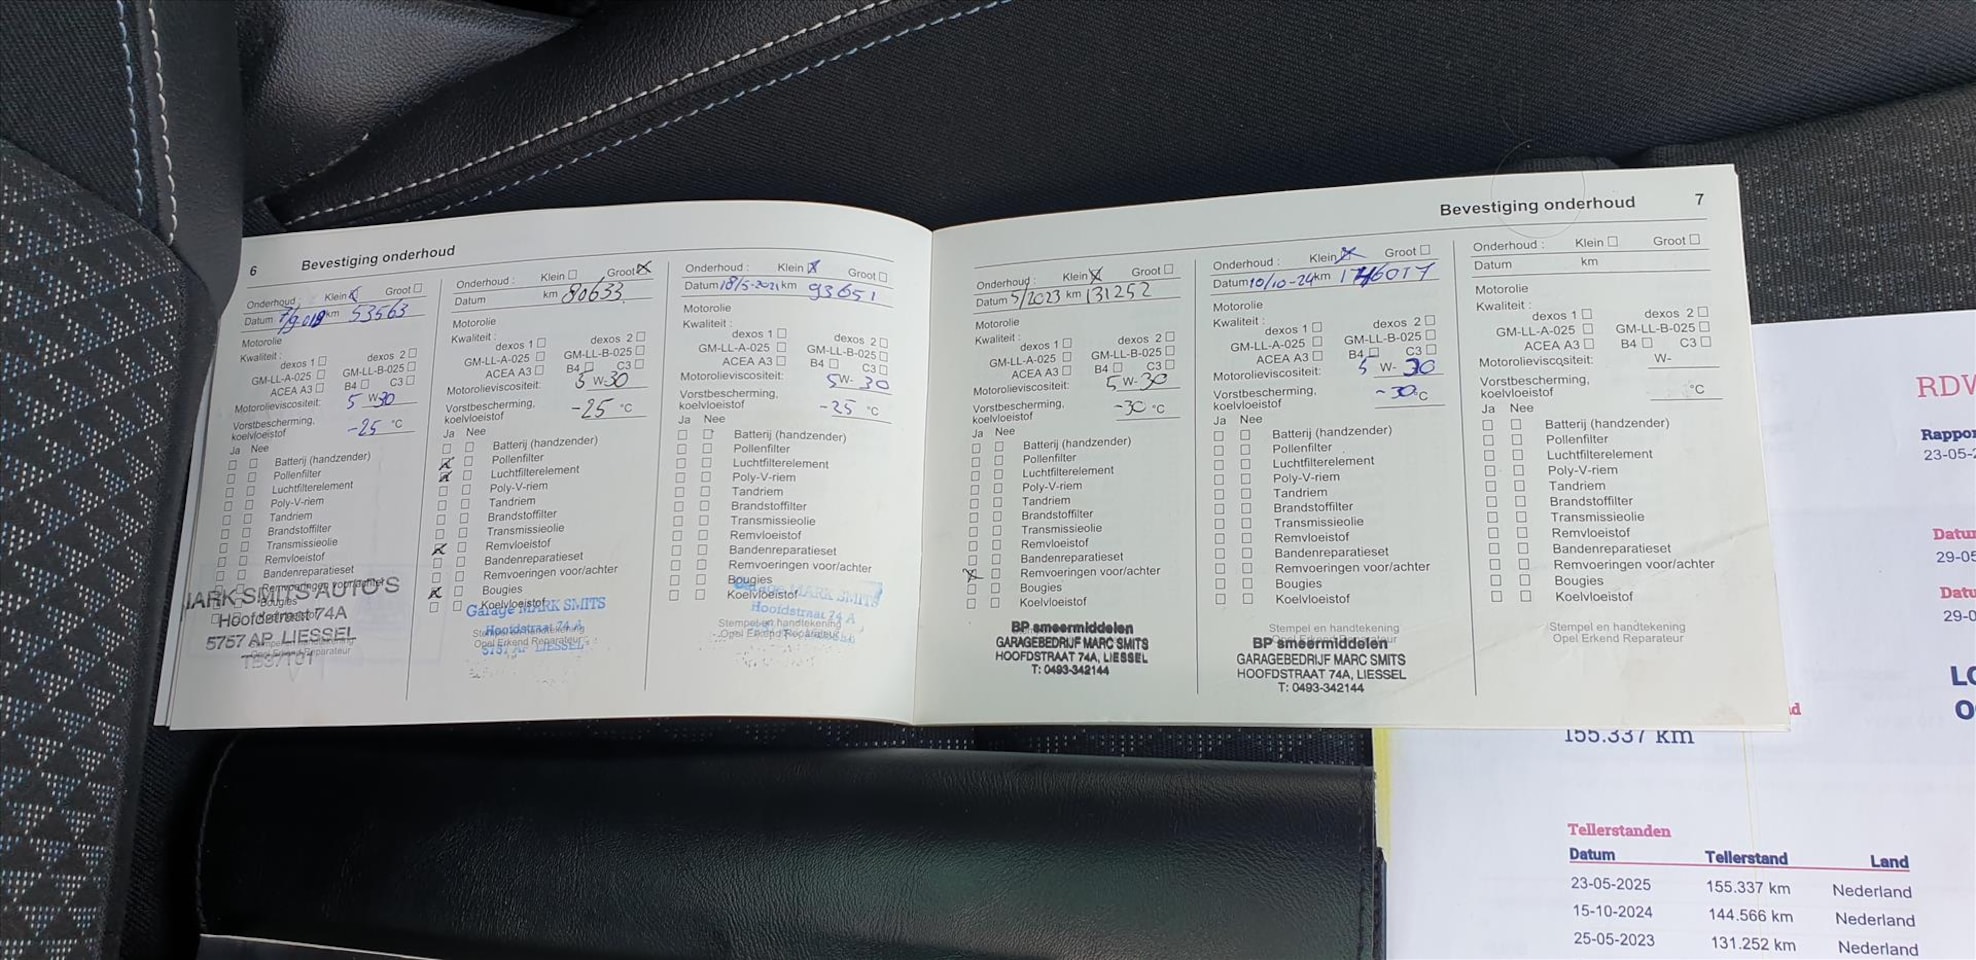 6 Bevestiging onderhoud
Onderhoud : Klein Groot
Datum 7/9 2018 km 53563
Motorolie
Kwaliteit :
dexos 1 dexos 2
GM-LL-A-025 GM-LL-B-025
ACEA A3 B4 C3
Motorolieviscositeit:
5 W 30
Vorstbescherming,
koelvloeistof -25 °C
Ja Nee
Batterij (handzender)
Pollenfilter
Luchtfilterelement
Poly-V-riem
Tandriem
Brandstoffilter
Transmissieolie
Remvloeistof
Bandenreparatieset
Remvoeringen voor/achter
Bougies
Koelvloeistof
MARK SMITS AUTO'S
Hoofdstraat 74A
5757 AP LIESSEL
Stempel en handtekening
Opel Erkend Reparateur
Onderhoud : Klein Groot
Datum km 80633
Motorolie
Kwaliteit :
dexos 1 dexos 2
GM-LL-A-025 GM-LL-B-025
ACEA A3 B4 C3
Motorolieviscositeit: 5 W-30
Vorstbescherming,
koelvloeistof -25 °C
Ja Nee
Batterij (handzender)
Pollenfilter
Luchtfilterelement
Poly-V-riem
Tandriem
Brandstoffilter
Transmissieolie
Remvloeistof
Bandenreparatieset
Remvoeringen voor/achter
Bougies
Koelvloeistof
Garage MARK SMITS
Hoofdstraat 74 A
5757 AP LIESSEL
Stempel en handtekening
Opel Erkend Reparateur
Onderhoud : Klein Groot
Datum 18/5-2021 km 93651
Motorolie
Kwaliteit :
dexos 1 dexos 2
GM-LL-A-025 GM-LL-B-025
ACEA A3 B4 C3
Motorolieviscositeit: 5 W- 30
Vorstbescherming,
koelvloeistof -25 °C
Ja Nee
Batterij (handzender)
Pollenfilter
Luchtfilterelement
Poly-V-riem
Tandriem
Brandstoffilter
Transmissieolie
Remvloeistof
Bandenreparatieset
Remvoeringen voor/achter
Bougies
Koelvloeistof
Garage MARK SMITS
Hoofdstraat 74 A
Stempel en handtekening
Opel Erkend Reparateur
Bevestiging onderhoud 7
Onderhoud : Klein Groot
Datum 5/2023 km 131252
Motorolie
Kwaliteit :
dexos 1 dexos 2
GM-LL-A-025 GM-LL-B-025
ACEA A3 B4 C3
Motorolieviscositeit: 5 W-30
Vorstbescherming,
koelvloeistof -30 °C
Ja Nee
Batterij (handzender)
Pollenfilter
Luchtfilterelement
Poly-V-riem
Tandriem
Brandstoffilter
Transmissieolie
Remvloeistof
Bandenreparatieset
Remvoeringen voor/achter
Bougies
Koelvloeistof
BP smeermiddelen
GARAGEBEDRIJF MARC SMITS
HOOFDSTRAAT 74A, LIESSEL
T: 0493-342144
Onderhoud : Klein Groot
Datum 10/10-24 km
Motorolie
Kwaliteit :
dexos 1 dexos 2
GM-LL-A-025 GM-LL-B-025
ACEA A3 B4 C3
Motorolieviscositeit: 5 W- 30
Vorstbescherming,
koelvloeistof -30 °C
Ja Nee
Batterij (handzender)
Pollenfilter
Luchtfilterelement
Poly-V-riem
Tandriem
Brandstoffilter
Transmissieolie
Remvloeistof
Bandenreparatieset
Remvoeringen voor/achter
Bougies
Koelvloeistof
Stempel en handtekening
Opel Erkend Reparateur
BP smeermiddelen
GARAGEBEDRIJF MARC SMITS
HOOFDSTRAAT 74A, LIESSEL
T: 0493-342144
Onderhoud : Klein Groot
Datum km
Motorolie
Kwaliteit :
dexos 1 dexos 2
GM-LL-A-025 GM-LL-B-025
ACEA A3 B4 C3
Motorolieviscositeit: W-
Vorstbescherming,
koelvloeistof °C
Ja Nee
Batterij (handzender)
Pollenfilter
Luchtfilterelement
Poly-V-riem
Tandriem
Brandstoffilter
Transmissieolie
Remvloeistof
Bandenreparatieset
Remvoeringen voor/achter
Bougies
Koelvloeistof
Stempel en handtekening
Opel Erkend Reparateur
RDW
Rappor
23-05-2
Datu
29-05
Datu
29-0
LO
O
d
155.337 km
Tellerstanden
Datum Tellerstand Land
23-05-2025 155.337 km Nederland
15-10-2024 144.566 km Nederland
25-05-2023 131.252 km Nederland